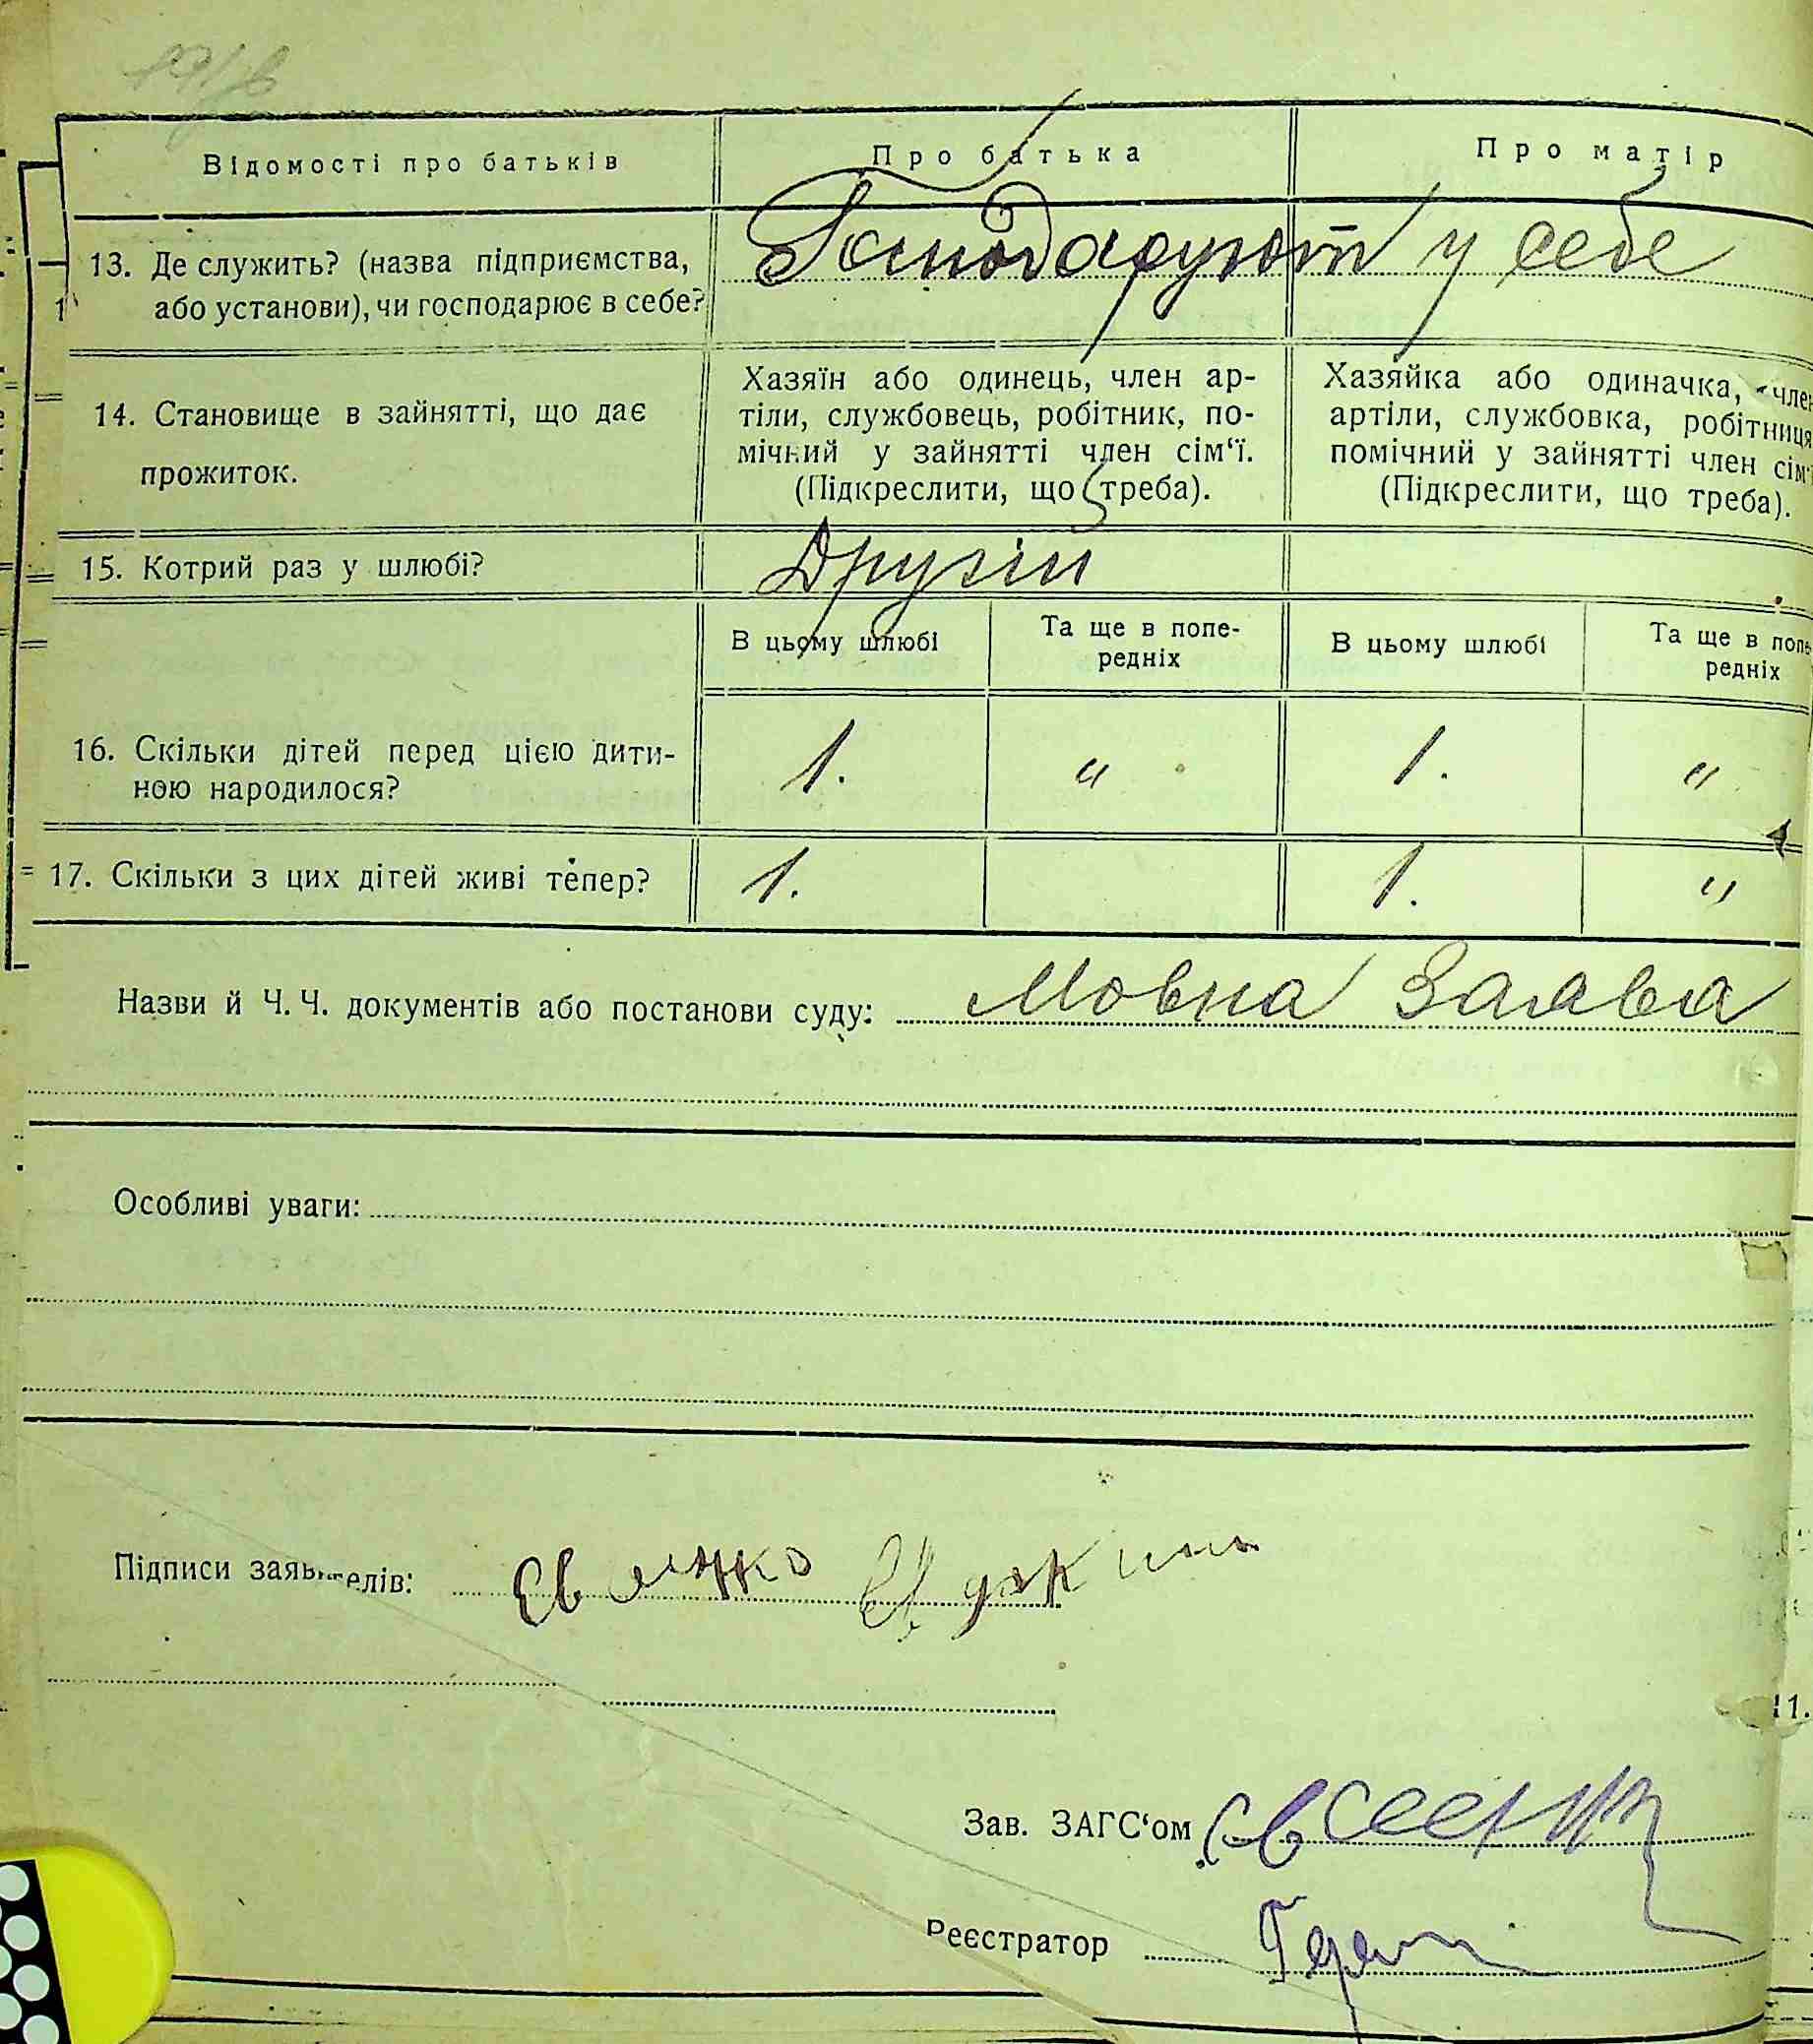 Відомості про батьків
Про батька
Про матір
13. Де служить? (назва підприємства,
або установи), чи господарює в себе?
Господарують у себе
14. Становище в зайнятті, що дає
прожиток.
Хазяїн або одинець, член ар-
тіли, службовець, робітник, по-
мічний у зайнятті член сім‘ї.
(Підкреслити, що треба).
Хазяйка або одиначка, член
артіли, службовка, робітниця
помічний у зайнятті член сім‘ї
(Підкреслити, що треба).
15. Котрий раз у шлюбі?
Другий
В цьому шлюбі
Та ще в попе-
редніх
В цьому шлюбі
Та ще в попе-
редніх
16. Скільки дітей перед цією дити-
ною народилося?
1. " 1. "
17. Скільки з цих дітей живі тепер?
1. 1. "
Назви й Ч. Ч. документів або постанови суду: Мовна Заява
Особливі уваги:
Підписи заявителів:
Зав. ЗАГС‘ом
Реєстратор
11.